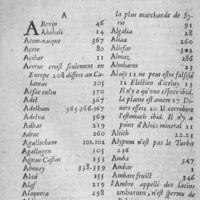 A
ABexin 46
Abohali 14
Acom-naique 367
Açere 80
Açibar 11
Acorus croist seulement en
Europe 208 differe au Calamus 205
Asfae culea 370
Adel 367
Adelham 367
Adelica 369
Adhbar 239
Adrac 260
Agallochum 101.102
Agalugen 103
Agnus Castus 235
Abouay 338.339
Alad 155
Alaf 219
Alaqueca 298
la plus marchande de Syrie 91
Algalia 28
Aliaa 260
Aliofar 302
Almaz 286
Almharut 25
Aloës 11 ne peut estre falsifié
12 Election d'icelui 13
Il n'y a qu'une espece ibid.
la plante est amere 17 Divers
usages 20. Il ne corrobore
l'estomach ibid. Il n'y a
point d'Aloës mineral 11
Altith 22
Alypum n'est pas le Turbit
Amba 347
Ambar 1
Ambare fruict 346
Ambre appellé des latins
ambarum, n'est sperme de